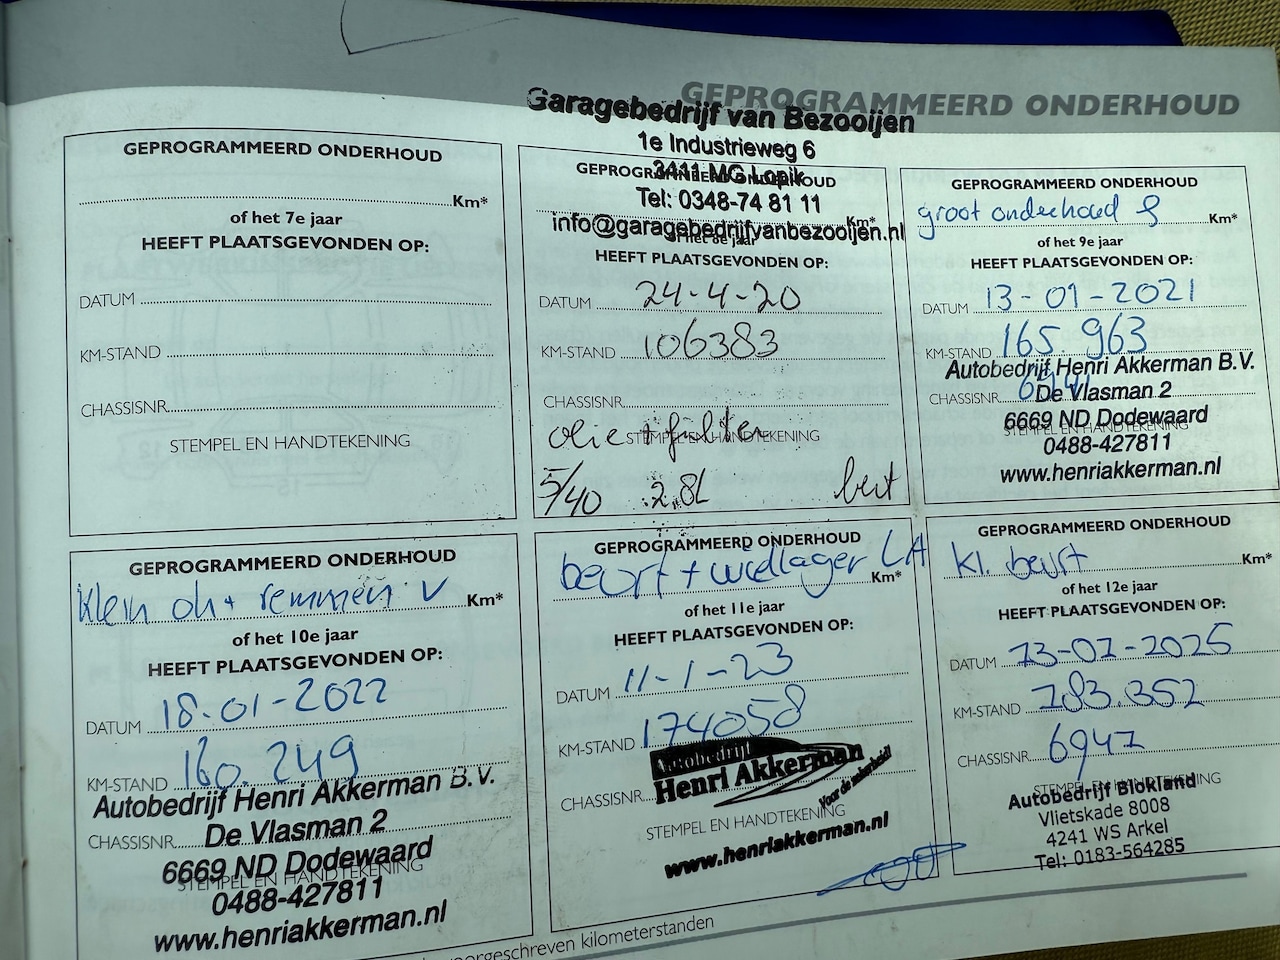 GEPROGRAMMEERD ONDERHOUD
GEPROGRAMMEERD ONDERHOUD
Km*
of het 7e jaar
HEEFT PLAATSGEVONDEN OP:
DATUM
KM-STAND
CHASSISNR.
STEMPEL EN HANDTEKENING
Garagebedrijf van Bezooijen
1e Industrieweg 6
3411 MG Lopik
GEPROGRAMMEERD ONDERHOUD
Tel: 0348-74 81 11
Km*
info@garagebedrijfvanbezooijen.nl
of het 8e jaar
HEEFT PLAATSGEVONDEN OP:
DATUM 24-4-20
KM-STAND 106383
CHASSISNR.
olie + filter
STEMPEL EN HANDTEKENING
5/40 2.8L bert
GEPROGRAMMEERD ONDERHOUD
groot onderhoud Km*
of het 9e jaar
HEEFT PLAATSGEVONDEN OP:
DATUM 13-01-2021
KM-STAND 165 963
Autobedrijf Henri Akkerman B.V.
CHASSISNR.
De Vlasman 2
6669 ND Dodewaard
STEMPEL EN HANDTEKENING
0488-427811
www.henriakkerman.nl
GEPROGRAMMEERD ONDERHOUD
Klein oh + remmen V Km*
of het 10e jaar
HEEFT PLAATSGEVONDEN OP:
DATUM 18-01-2022
KM-STAND 160.249
Autobedrijf Henri Akkerman B.V.
CHASSISNR. De Vlasman 2
6669 ND Dodewaard
STEMPEL EN HANDTEKENING
0488-427811
www.henriakkerman.nl
GEPROGRAMMEERD ONDERHOUD
beurt + wiellager LA
Km*
of het 11e jaar
HEEFT PLAATSGEVONDEN OP:
DATUM 11-1-23
KM-STAND 174058
Autobedrijf
Henri Akkerman
CHASSISNR.
STEMPEL EN HANDTEKENING
www.henriakkerman.nl
GEPROGRAMMEERD ONDERHOUD
kl. beurt Km*
of het 12e jaar
HEEFT PLAATSGEVONDEN OP:
DATUM
KM-STAND
CHASSISNR.
STEMPEL EN HANDTEKENING
Autobedrijf Blokland
Vlietskade 8008
4241 WS Arkel
Tel: 0183-564285
voorgeschreven kilometerstanden